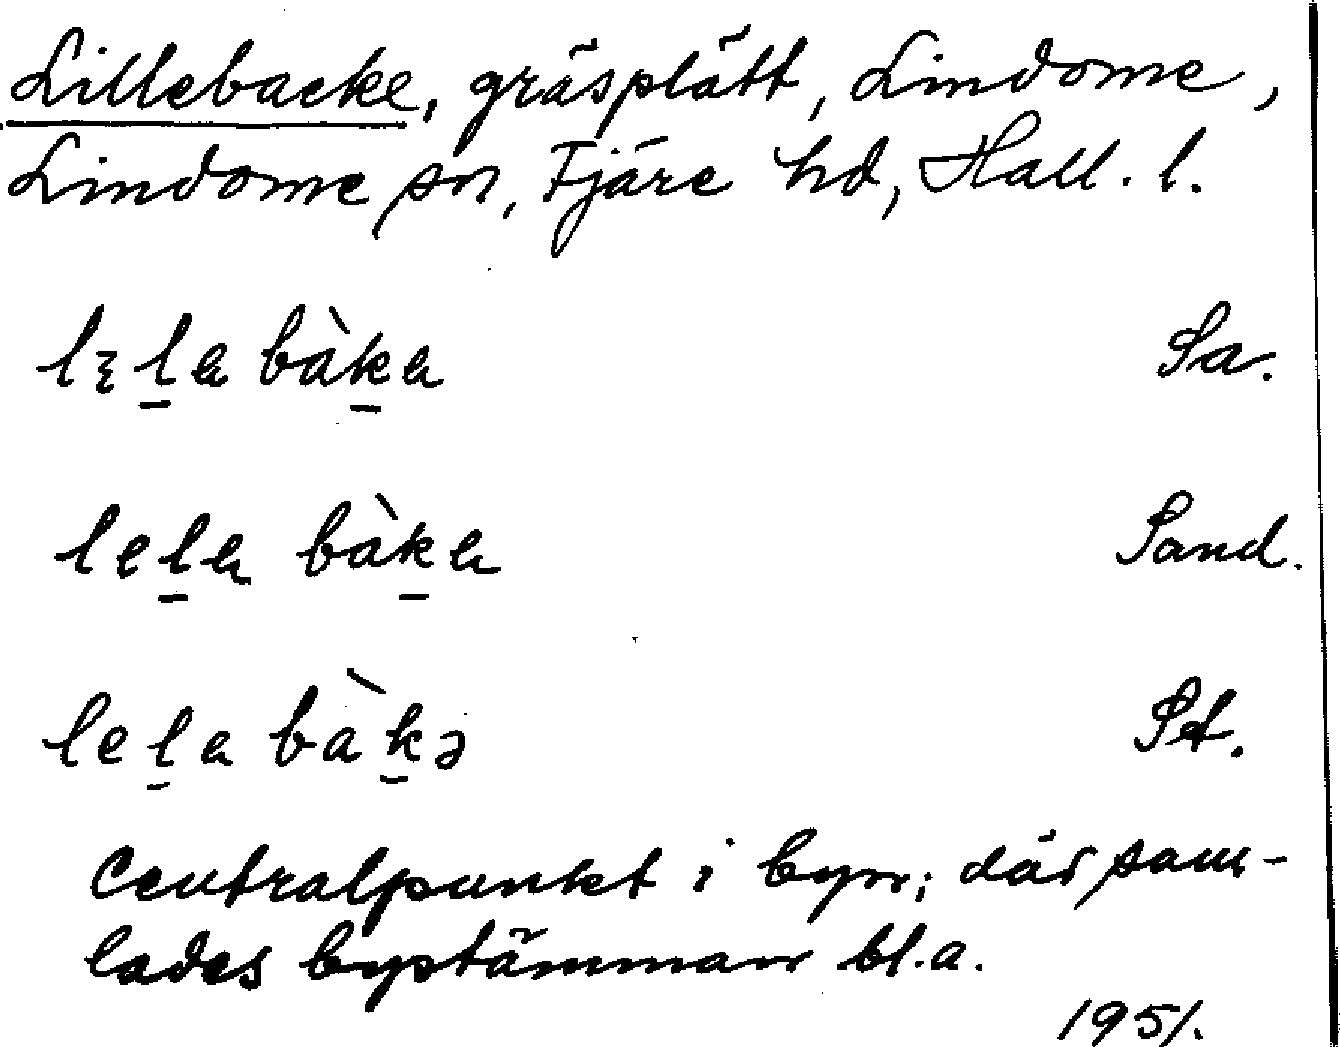 Lillebacke, gräsplätt, Lindome,
Lindome sn, Fjäre hd, Hall. l.
lɛla bàka Sa.
lela bàka Sand.
lela bàkə Pet.
Centralpunkt i byn; där sam-
lades bystämman bl.a.
1951.